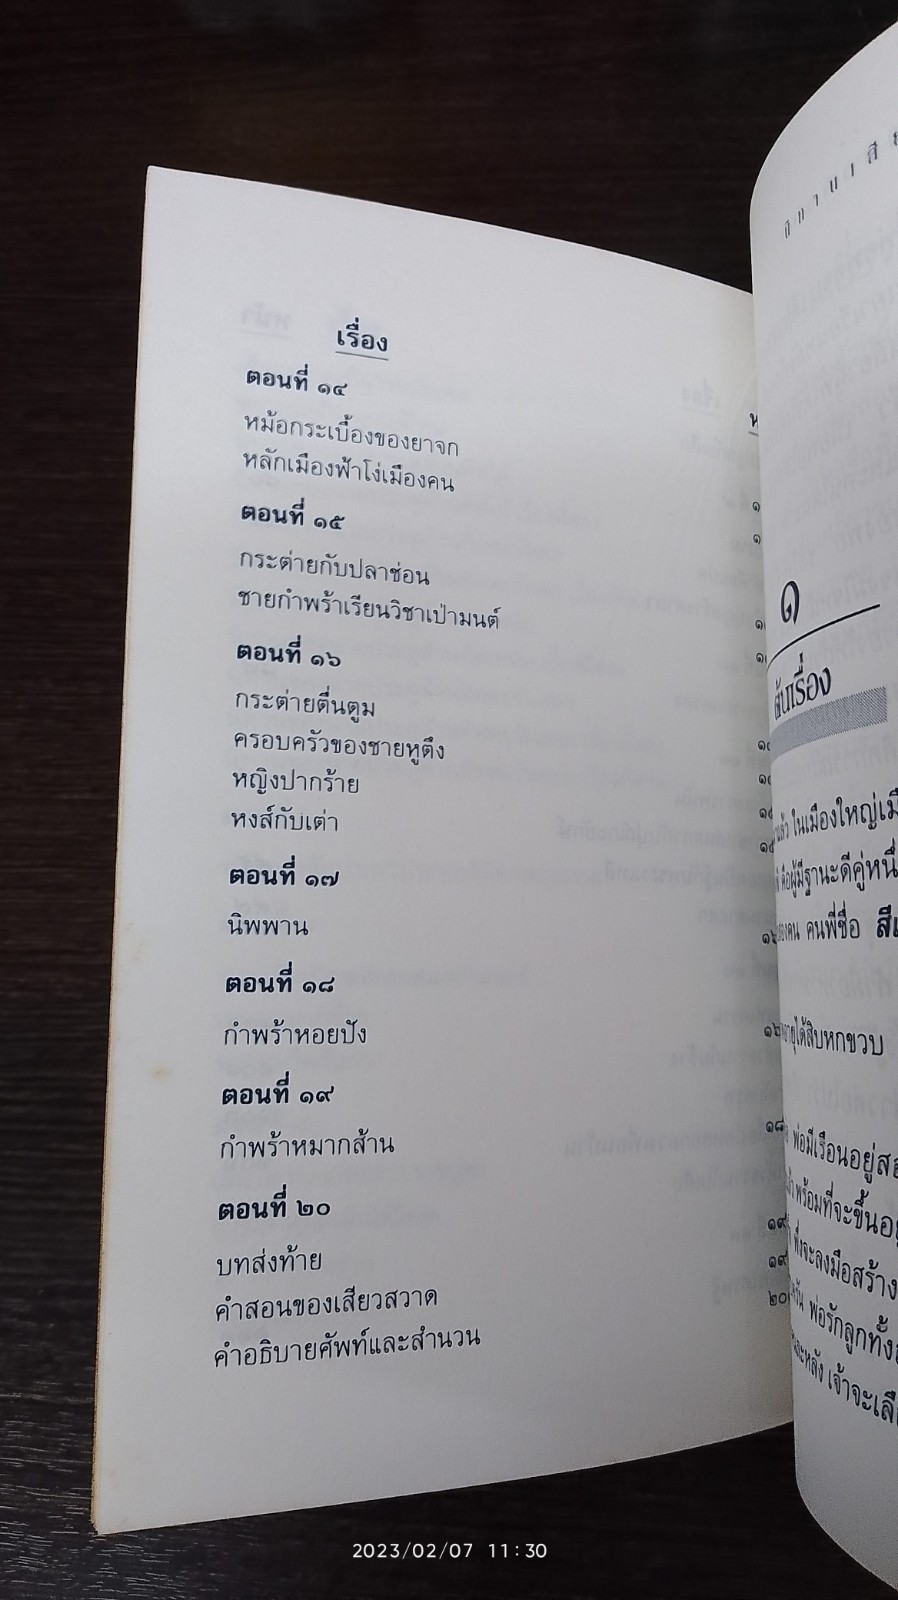 เรื่อง
ตอนที่ ๑๔
หม้อกระเบื้องของยาจก
หลักเมืองฟ้าโง่เมืองคน
ตอนที่ ๑๕
กระต่ายกับปลาช่อน
ชายกำพร้าเรียนวิชาเป่ามนต์
ตอนที่ ๑๖
กระต่ายตื่นตูม
ครอบครัวของชายหูตึง
หญิงปากร้าย
หงส์กับเต่า
ตอนที่ ๑๗
นิพพาน
ตอนที่ ๑๘
กำพร้าหอยปัง
ตอนที่ ๑๙
กำพร้าหมากส้าน
ตอนที่ ๒๐
บทส่งท้าย
คำสอนของเสียวสวาด
คำอธิบายศัพท์และสำนวน
๑
ต้นเรื่อง
ในเมืองใหญ่
คือผู้มีฐานะดี
คนพี่ชื่อ
อายุได้สิบหกขวบ
พ่อมีเรือนอยู่
พร้อมที่จะขึ้น
ซึ่งจะลงมือสร้าง
พ่อรักลูก
เจ้าจะ
2023/02/07 11:30